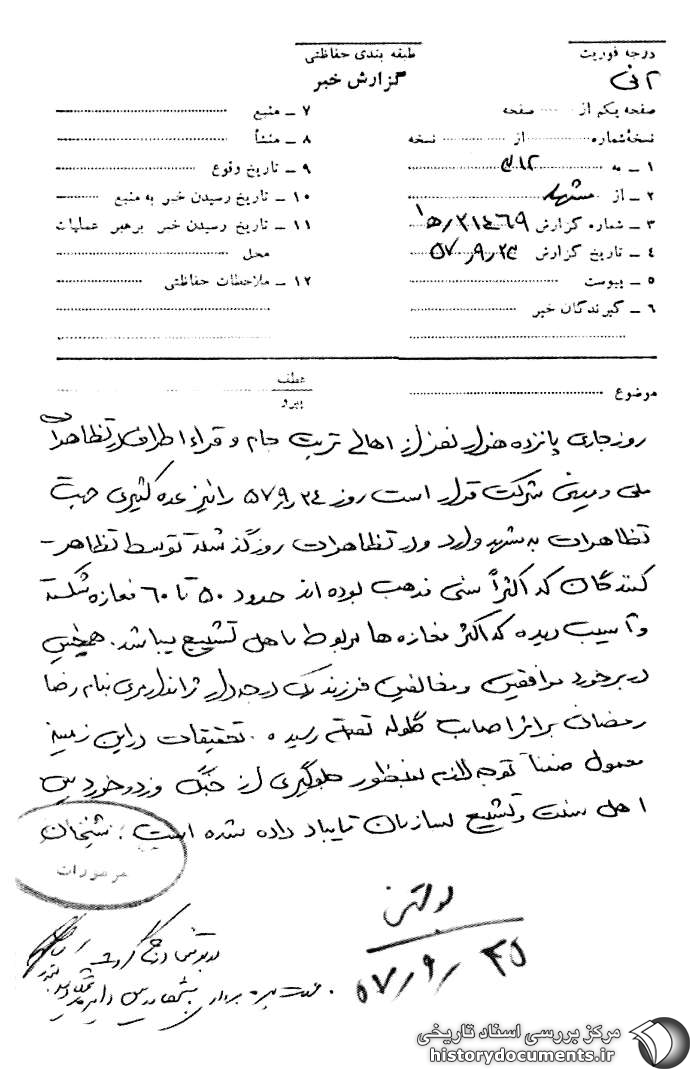 درجه فوریت
طبقه بندی حفاظتی
گزارش خبر
صفحه یکم از ........ صفحه
نسخه شماره ........ از ........ نسخه
۱ ـ به ۳۱۲
۲ ـ از مشهد
۳ ـ شماره گزارش ۲۱۴۶۹/ه‍۱
۴ ـ تاریخ گزارش ۵۷/۹/۲۳
۵ ـ پیوست
۶ ـ گیرندگان خبر
۷ ـ منبع
۸ ـ منشأ
۹ ـ تاریخ وقوع
۱۰ ـ تاریخ رسیدن خبر به منبع
۱۱ ـ تاریخ رسیدن خبر برهبر عملیات
محل
۱۲ ـ ملاحظات حفاظتی
موضوع
عطف
پیرو
روز جاری پانزده هزار نفر از اهالی تربت جام و قراء اطراف در تظاهرات
ملی و میهنی شرکت قرار است روز ۵۷/۹/۲۴ را نیز عده کثیری جهت
تظاهرات به مشهد وارد و در تظاهرات روز گذشته توسط تظاهر-
کنندگان که اکثراً سنی مذهب بوده اند حدود ۵۰ تا ۶۰ مغازه شکسته
و آسیب دیده که اکثر مغازه ها مربوط باهل تشییع میباشد. همچنین
در برخورد موافقین و مخالفین فرزند یک درجه دار ژاندارمری بنام رضا
رمضانی بر اثر اصابت گلوله بقتل رسیده. تحقیقات در این زمینه
معمول ضمناً توجه لازم بمنظور جلوگیری از جنگ و زد و خورد بین
اهل سنت و تشییع بسازمان تایباد داده شده است. شیخان
مرموزات
بولتن
۵۷/۹/۲۵
در بولتن درج گردید
جهت بهره برداری
مرکز بررسی اسناد تاریخی
historydocuments.ir